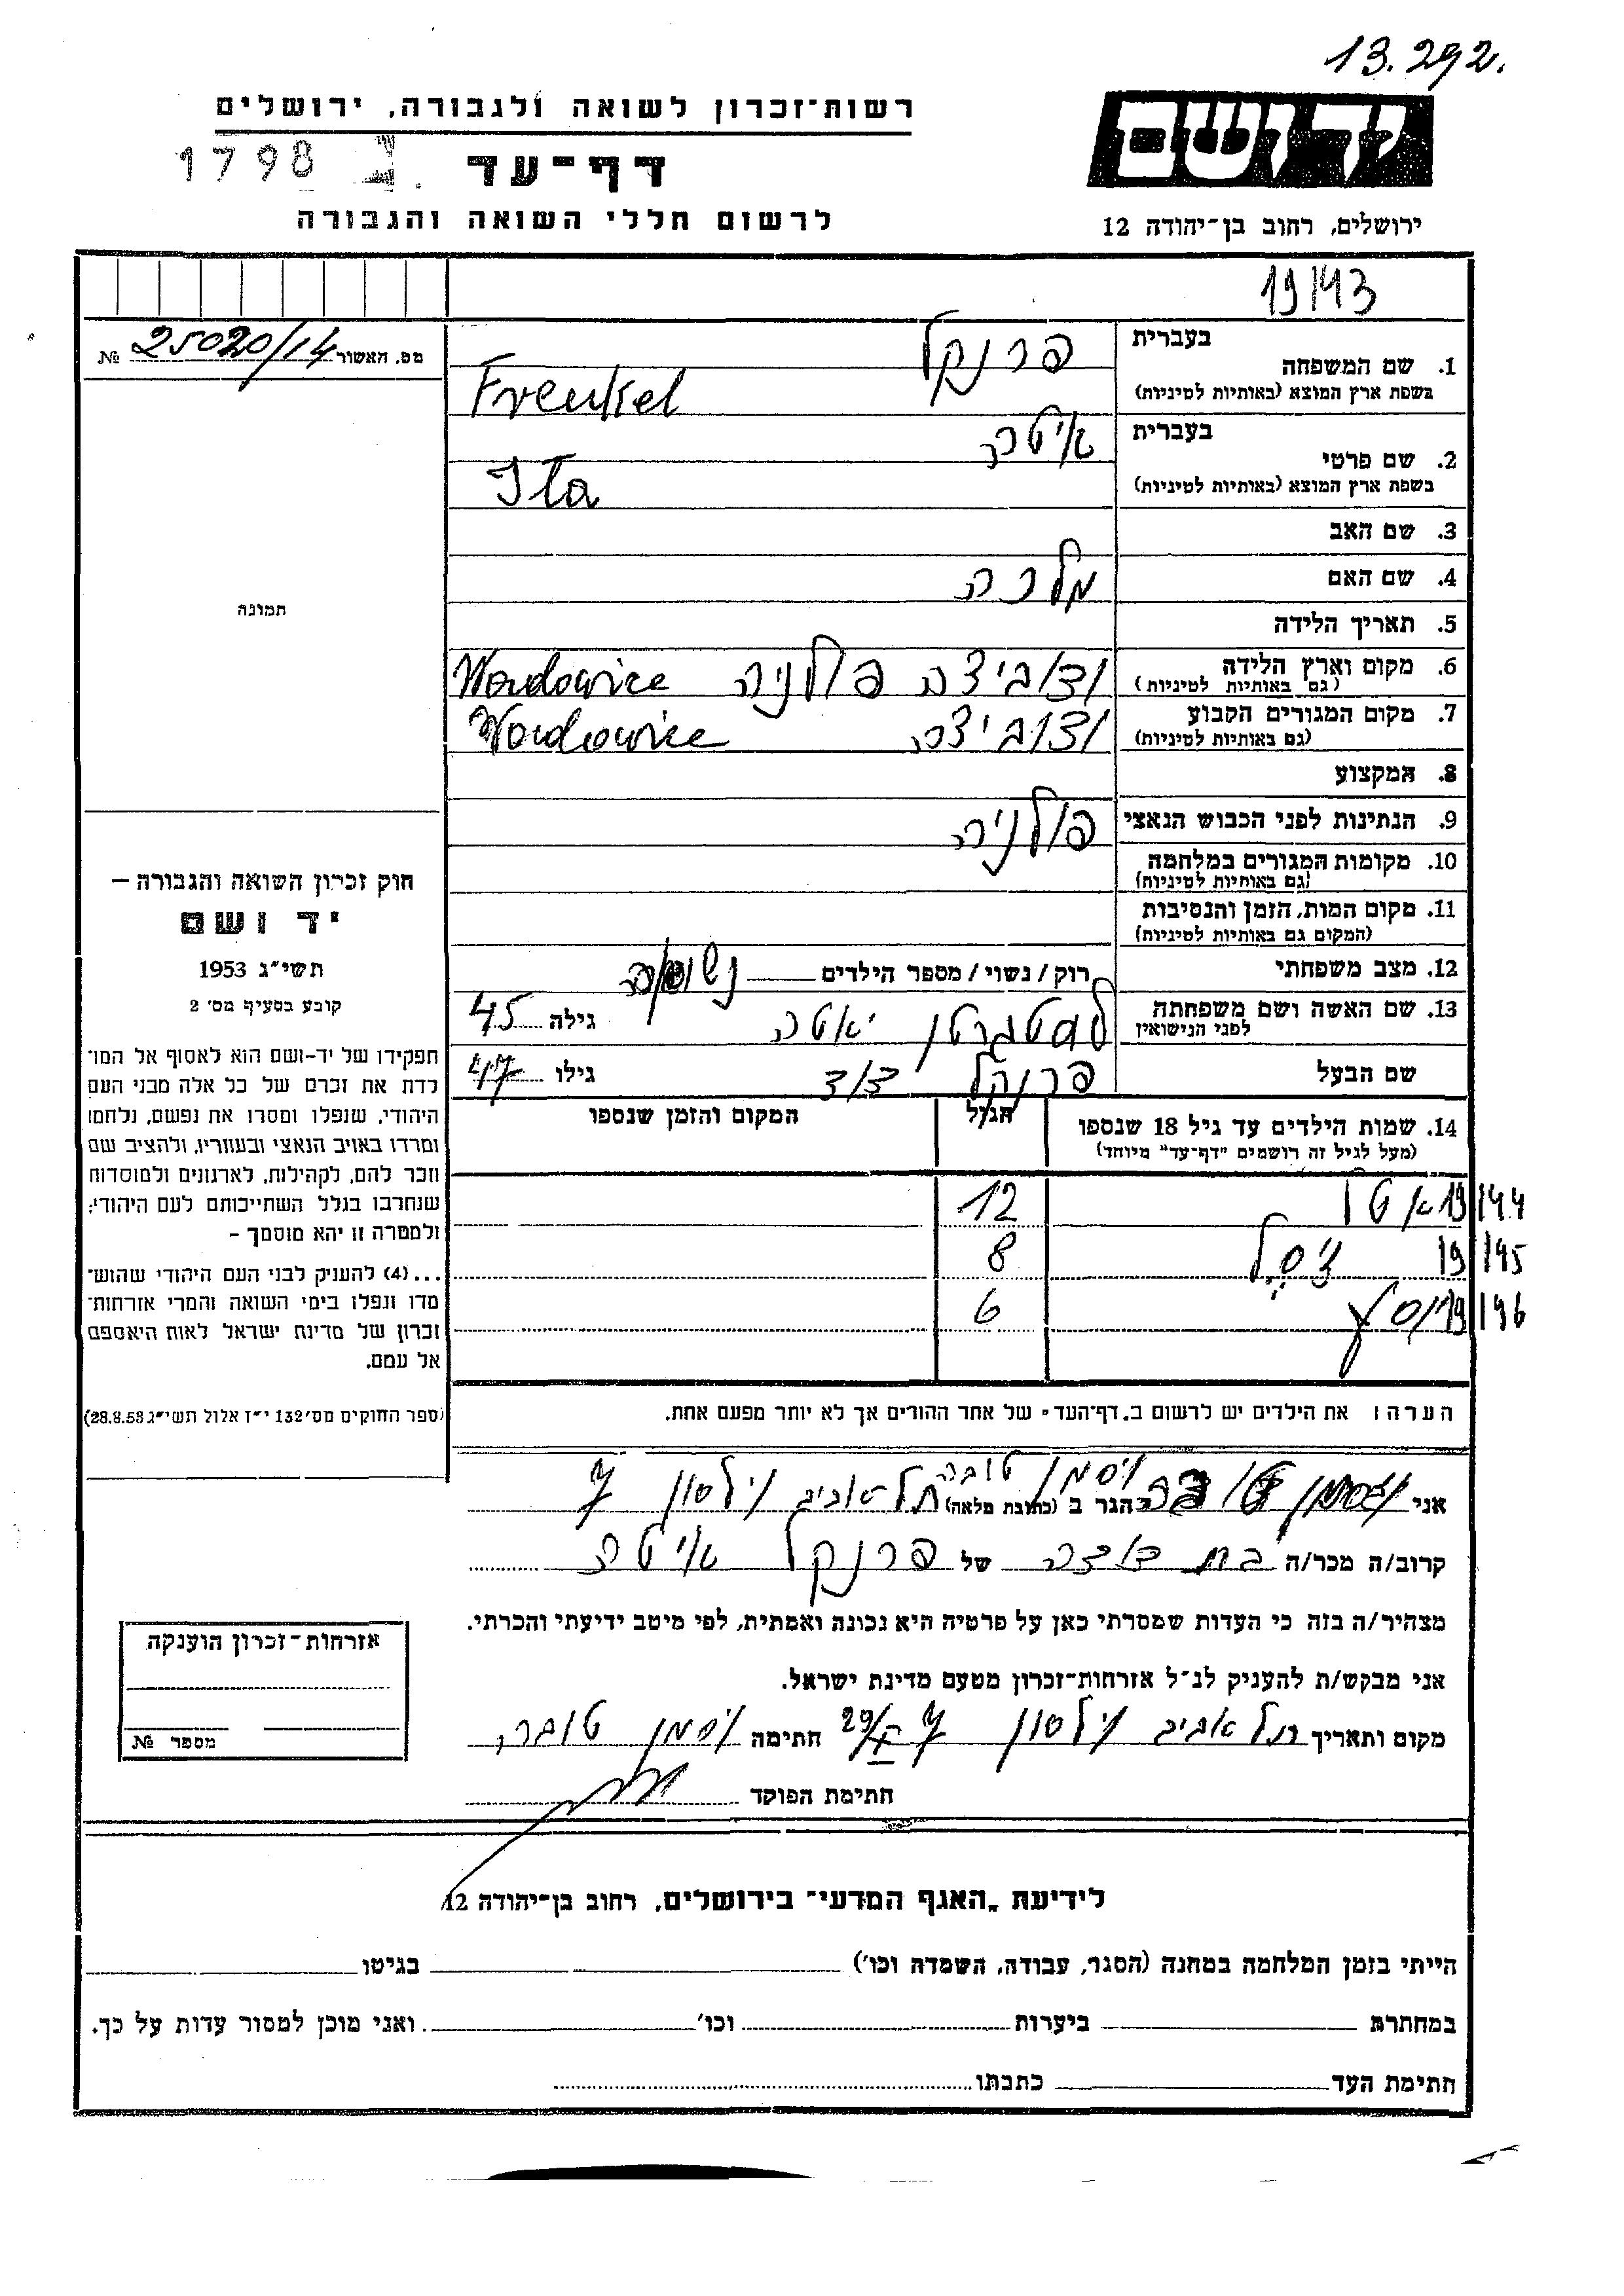 13.292.
יד ושם
רשות־זכרון לשואה ולגבורה, ירושלים
דף־עד
1798
לרשום חללי השואה והגבורה
ירושלים, רחוב בן־יהודה 12
19/43
מס. האשור 25020/14 №
1. שם המשפחה
בעברית
פרנקל
בשפת ארץ המוצא (באותיות לטיניות)
Frenkel
2. שם פרטי
בעברית
איטה
בשפת ארץ המוצא (באותיות לטיניות)
Ita
3. שם האב
4. שם האם
מלכה
5. תאריך הלידה
6. מקום וארץ הלידה
(גם באותיות לטיניות)
פולניה
7. מקום המגורים הקבוע
(גם באותיות לטיניות)
8. המקצוע
9. הנתינות לפני הכבוש הנאצי
פולניה
10. מקומות המגורים במלחמה
(גם באותיות לטיניות)
11. מקום המות, הזמן והנסיבות
(המקום גם באותיות לטיניות)
12. מצב משפחתי
רוק / נשוי / מספר הילדים
13. שם האשה ושם משפחתה
לפני הנישואין
גילה 45
שם הבעל
פרנקל
גילו 47
14. שמות הילדים עד גיל 18 שנספו
(מעל לגיל זה רושמים "דף־עד" מיוחד)
הגיל
המקום והזמן שנספו
19/44 12
19/45 8
19/46 6
הערה: את הילדים יש לרשום ב„דף־העד" של אחד ההורים אך לא יותר מפעם אחת.
תמונה
חוק זכרון השואה והגבורה –
יד ושם
תשי"ג 1953
קובע בסעיף מס' 2
תפקידו של יד–ושם הוא לאסוף אל המו־
לדת את זכרם של כל אלה מבני העם
היהודי, שנפלו ומסרו את נפשם, נלחמו
ומרדו באויב הנאצי ובעוזריו, ולהציב שם
וזכר להם, לקהילות, לארגונים ולמוסדות
שנחרבו בגלל השתייכותם לעם היהודי;
ולמטרה זו יהא מוסמך –
...(4) להעניק לבני העם היהודי שהוש־
מדו ונפלו בימי השואה והמרי אזרחות־
זכרון של מדינת ישראל לאות היאספם
אל עמם.
(ספר החוקים מס' 132 י"ז אלול תשי"ג 28.8.53)
אני ויסמן טובה הגר ב (כתובת מלאה) תל אביב וילסון 7
קרוב/ה מכר/ה בת דודה של פרנקל איטה
מצהיר/ה בזה כי העדות שמסרתי כאן על פרטיה היא נכונה ואמתית, לפי מיטב ידיעתי והכרתי.
אני מבקש/ת להעניק לנ"ל אזרחות־זכרון מטעם מדינת ישראל.
מקום ותאריך תל אביב וילסון 7 29/X חתימה ויסמן טובה
חתימת הפוקד
אזרחות־זכרון הוענקה
מספר №
לידיעת „האגף המדעי" בירושלים, רחוב בן־יהודה 12
הייתי בזמן המלחמה במחנה (הסגר, עבודה, השמדה וכו') בגיטו
במחתרת ביערות וכו' ואני מוכן למסור עדות על כך.
חתימת העד כתבתו